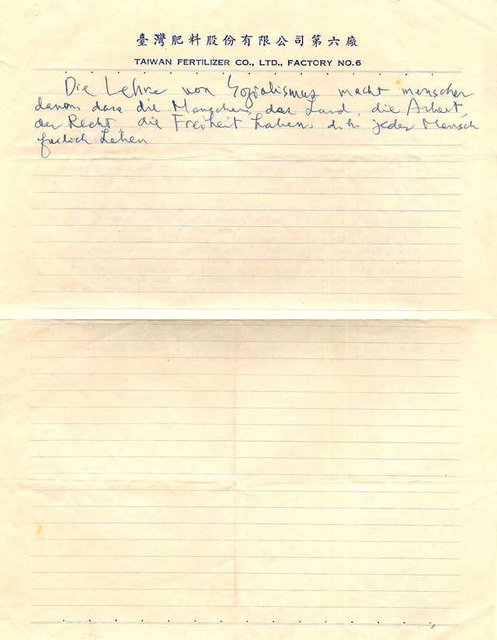 臺灣肥料股份有限公司第六廠
TAIWAN FERTILIZER CO., LTD., FACTORY NO.6
Die Lehre von Sozialismus macht menschen
davon dass die Menschen, das Land, die Arbeit,
das Recht die Freiheit haben. d.h. jeder Mensch
Leben